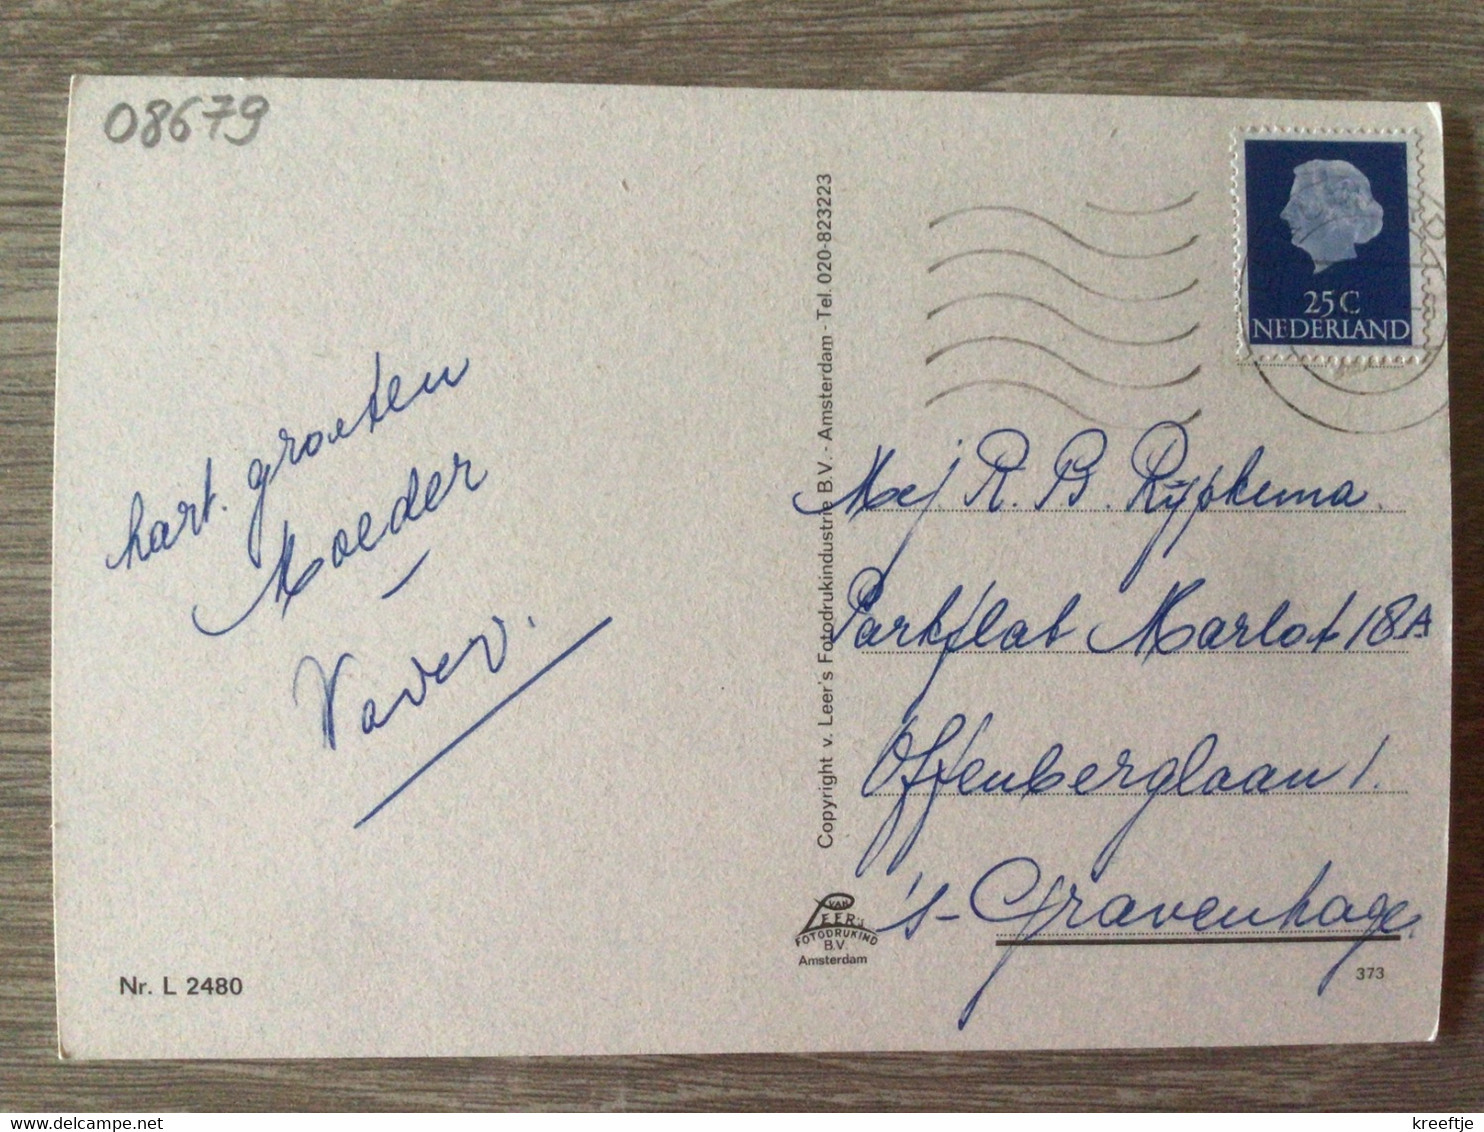 08679
hart. groeten
Moeder
Vader.
Nr. L 2480
Copyright v. Leer's Fotodrukindustrie B.V. - Amsterdam - Tel. 020-823223
25C
NEDERLAND
Mej R. B. Rijpkema.
Parkflat Marlot 18A
Offenberglaan 1.
's-Gravenhage.
VAN
LEER'S
FOTODRUKIND
B.V.
Amsterdam
373
delcampe.net
kreeftje